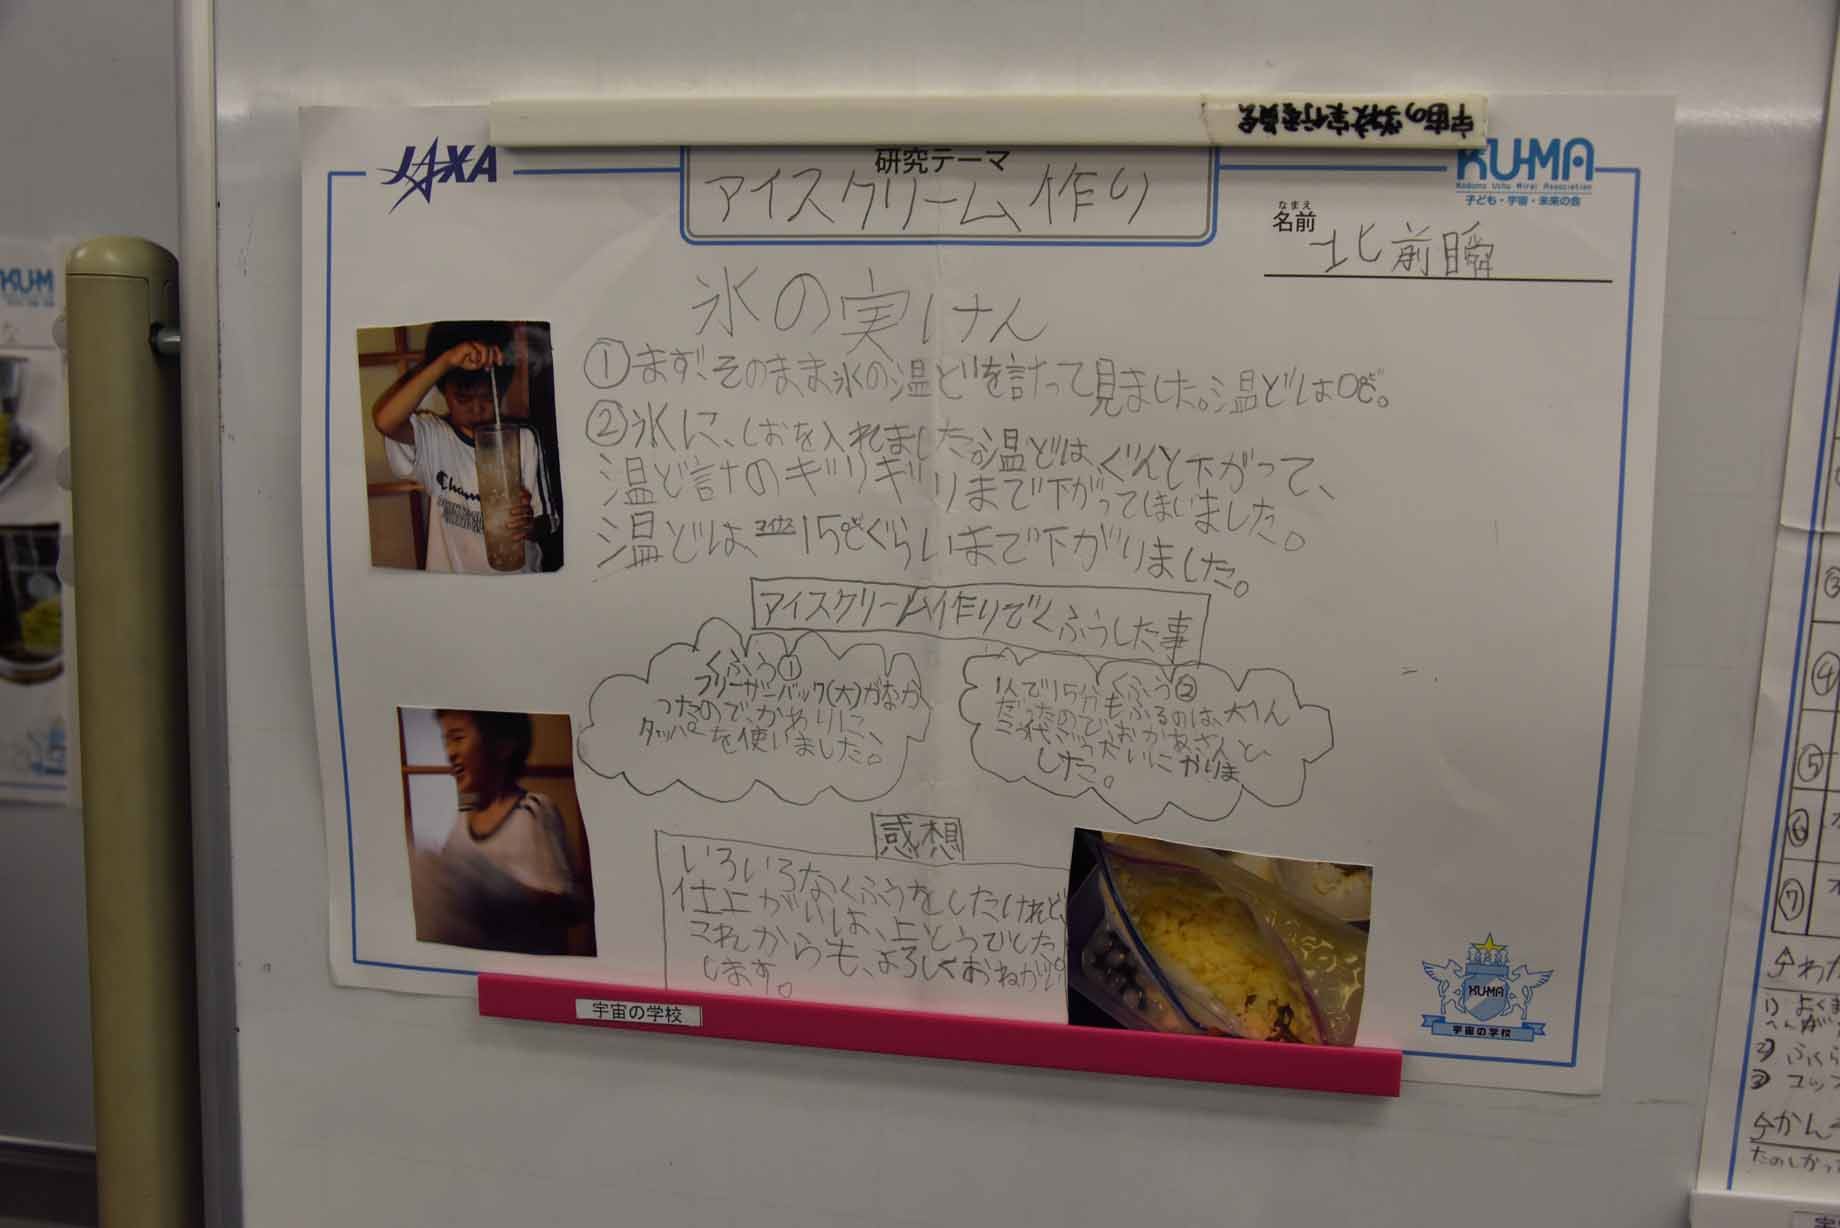 宇宙の学校実行委員会
JAXA
研究テーマ
アイスクリーム作り
KU-MA
Kodomo Uchu Mirai Association
子ども・宇宙・未来の会
なまえ
名前
北前瞬
氷の実けん
①まず、そのまま氷の温どを計って見ました。温どは0ど。
②氷に、しおを入れました。温どは、ぐんと下がって、
温ど計のギリギリまで下がってしまいました。
温どは、-15どぐらいまで下がりました。
アイスクリーム作りでくふうした事
くふう①
フリーザーバック(大)がなか
ったので、かわりに、
タッパーを使いました。
くふう②
1人で15分もふるのは、大へん
だったので、おかあさんと、
こうたいこ
しました。
感想
いろいろなくふうをしたけれど、
仕上がりは、上とうでした。
これからも、よろしくおねがい
します。
宇宙の学校
KUMA
宇宙の学校
KU-M
③
④
⑤
⑥
⑦
わた
1) よくま
② ふくら
③ コップ
かんそ
たのしかっ